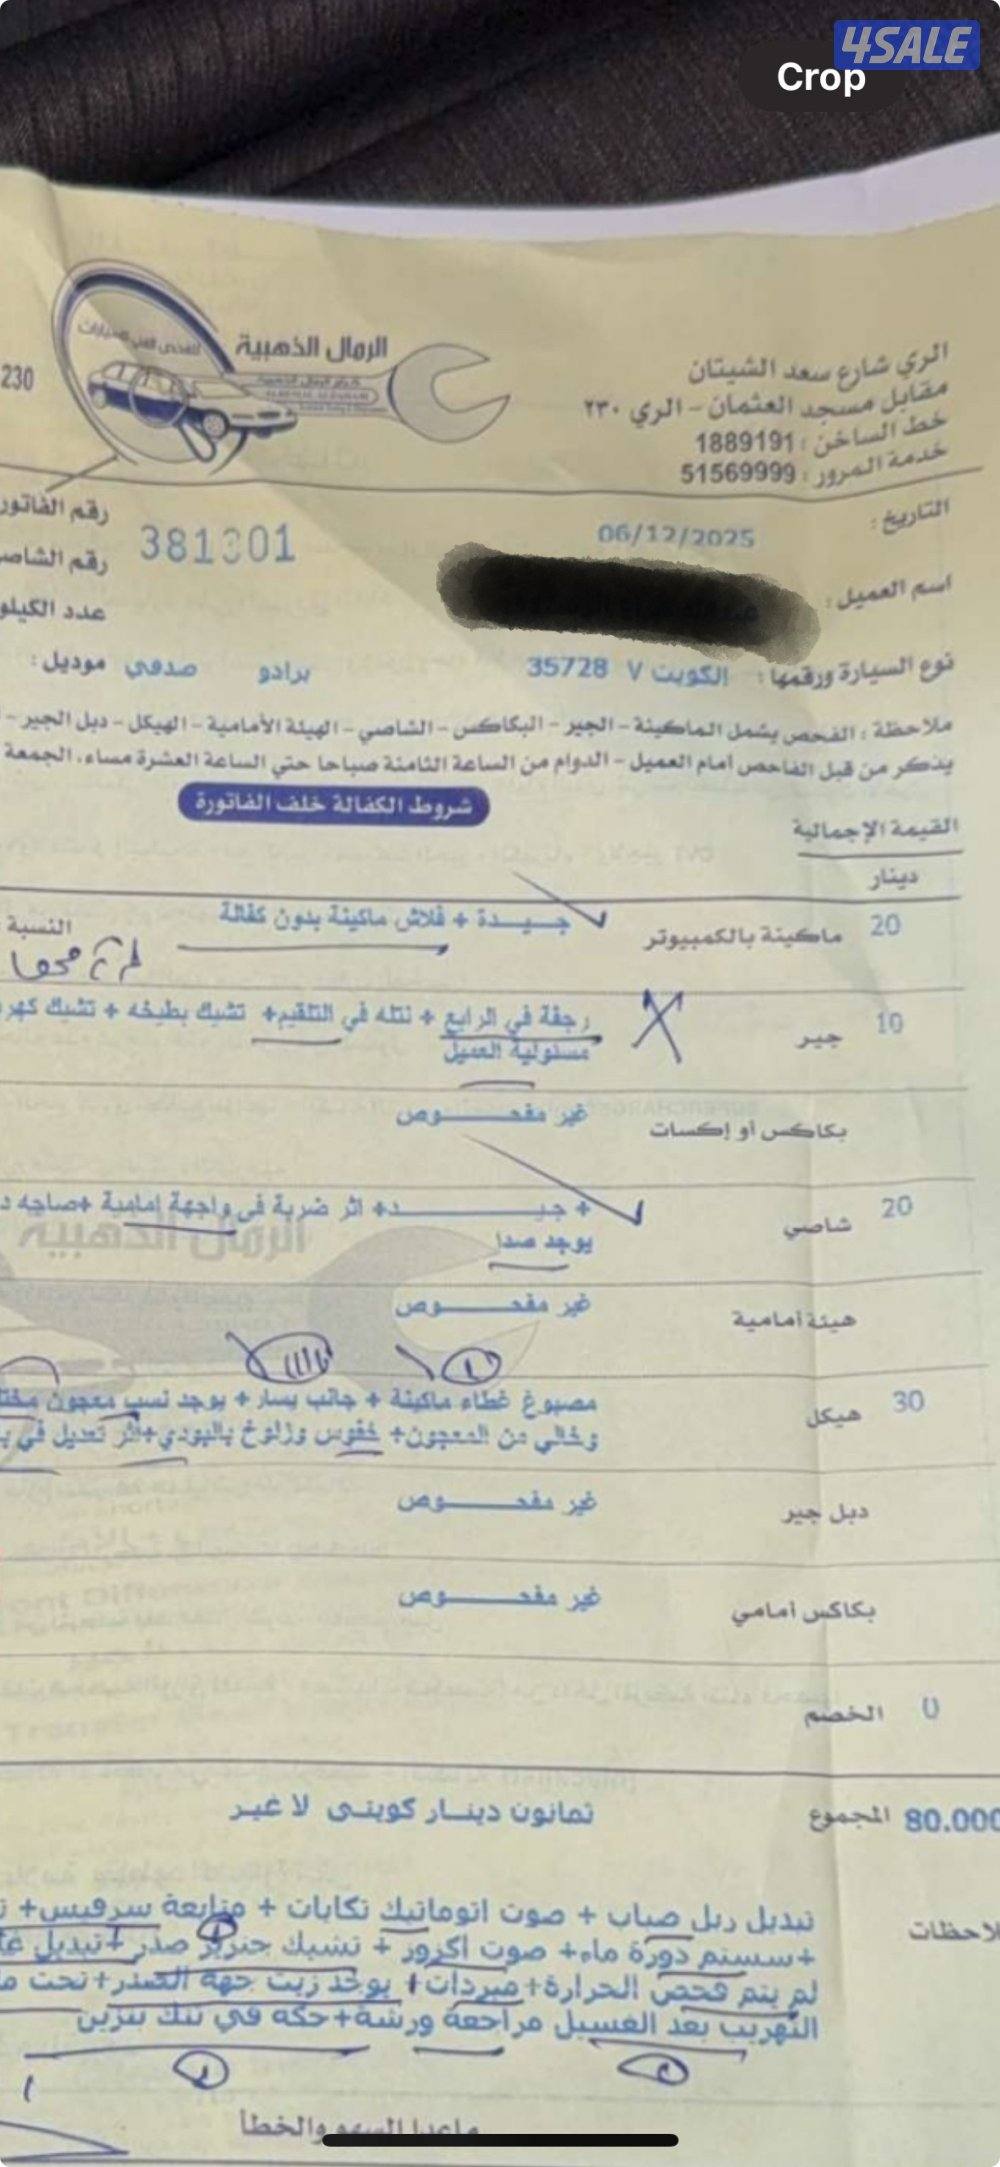 4SALE
Crop
الرمال الذهبية
للفحص الفني للسيارات
230
الري شارع سعد الشيتان
مقابل مسجد العثمان - الري ٢٣٠
خط الساخن : 1889191
خدمة المرور : 51569999
التاريخ : 06/12/2025
رقم الفاتور
381301
رقم الشاص
اسم العميل :
عدد الكيلو
نوع السيارة ورقمها : الكويت ٧ 35728 برادو صدفي موديل :
ملاحظة : الفحص يشمل الماكينة - الجير - البكاكس - الشاصي - الهيئة الأمامية - الهيكل - دبل الجير -
يذكر من قبل الفاحص أمام العميل - الدوام من الساعة الثامنة صباحا حتي الساعة العشرة مساء، الجمعة
شروط الكفالة خلف الفاتورة
القيمة الإجمالية
دينار
20 ماكينة بالكمبيوتر جيــدة + فلاش ماكينة بدون كفالة النسبة
10 جير رجفة في الرابع + نتله في التلقيم+ تشيك بطيخه + تشيك كهر
مسئولية العميل
بكاكس أو إكسات غير مفحــــوص
20 شاصي + جيــــــد+ اثر ضربة في واجهة امامية +صاجه د
يوجد صدا
هيئة أمامية غير مفحــــوص
30 هيكل مصبوغ غطاء ماكينة + جانب يسار + يوجد نسب معجون مختل
وخالي من المعجون+ خفوس وزلوخ بالبودي+اثر تعديل في
دبل جير غير مفحــــوص
بكاكس أمامي غير مفحــــوص
0 الخصم
80.000 المجموع ثمانون دينـار كويتى لا غيـر
لاحظات
تبديل ربل صباب + صوت اتوماتيك تكايات + متابعة سرفيس+
+سستم دورة ماء+ صوت اكزوز + تشيك جنزير صدر +تبديل
لم يتم فحص الحرارة+مبردات+ يوجد زيت جهة الصدر+تحت
التهريب بعد الغسيل مراجعة ورشة+حكه في تنك بنزين
ماعدا السهو والخطأ